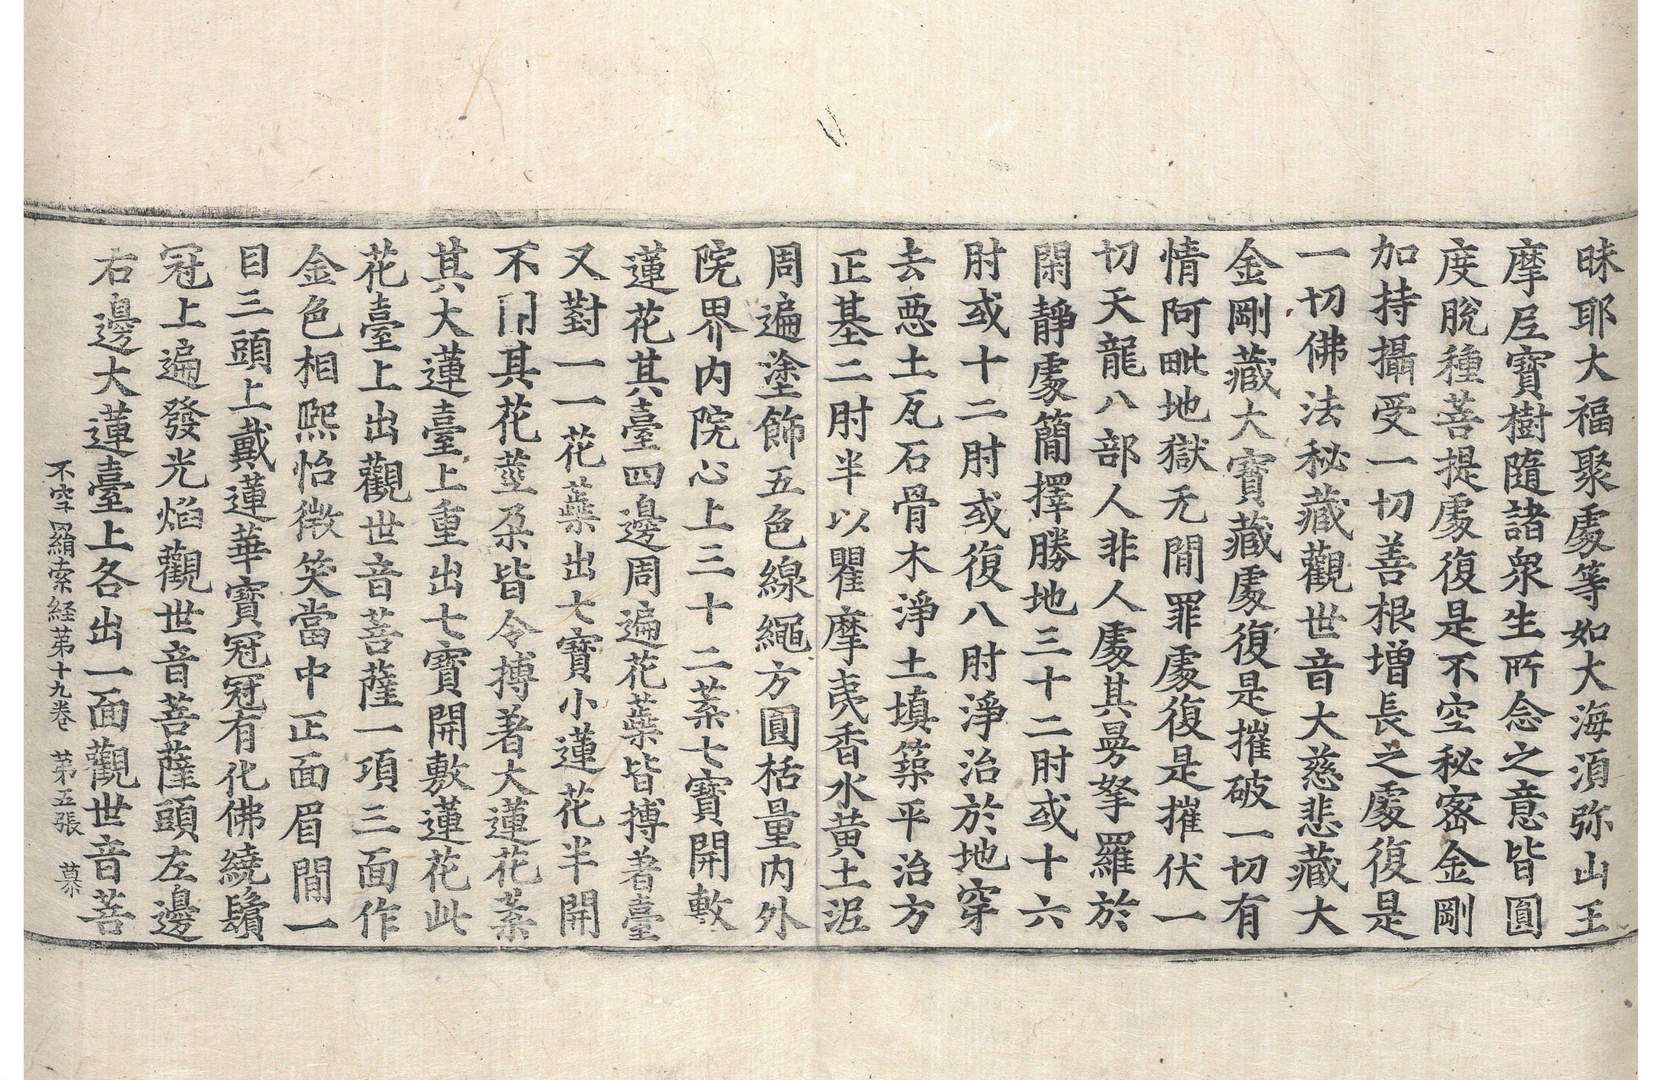 昧耶大福聚䖏等如大海湏弥山王
摩𡰱寶樹隨諸衆生所念之意皆圓
度脫種菩提䖏復是不空秘密金剛
加持攝受一切善根增長之䖏復是
一切佛法秘藏觀世音大慈悲藏大
金剛藏大寶藏䖏復是摧破一切有
情阿毗地獄无閒罪䖏復是摧伏一
切天龍八部人非人䖏其㬅拏羅於
閑靜䖏簡擇勝地三十二肘或十六
肘或十二肘或復八肘淨治於地穿
去惡土瓦石骨木淨土填築平治方
正基二肘半以瞿摩夷香水黃土泥
周遍塗飾五色線繩方圓栝量內外
院界內院心上三十二葉七寶開敷
蓮花其臺四邊周遍花蘂皆搏著臺
又對一一花蘂出七寶小蓮花半開
不開其花莖朶皆令搏著大蓮花葉
其大蓮臺上重出七寶開敷蓮花此
花臺上出觀世音菩薩一項三面作
金色相熙怡微笑當中正面眉閒一
目三頭上戴蓮華寶冠冠有化佛繞鬚
冠上遍發光焰觀世音菩薩頭左邊
右邊大蓮臺上各出一面觀世音菩
不空羂索経苐十九卷 苐五張 慕